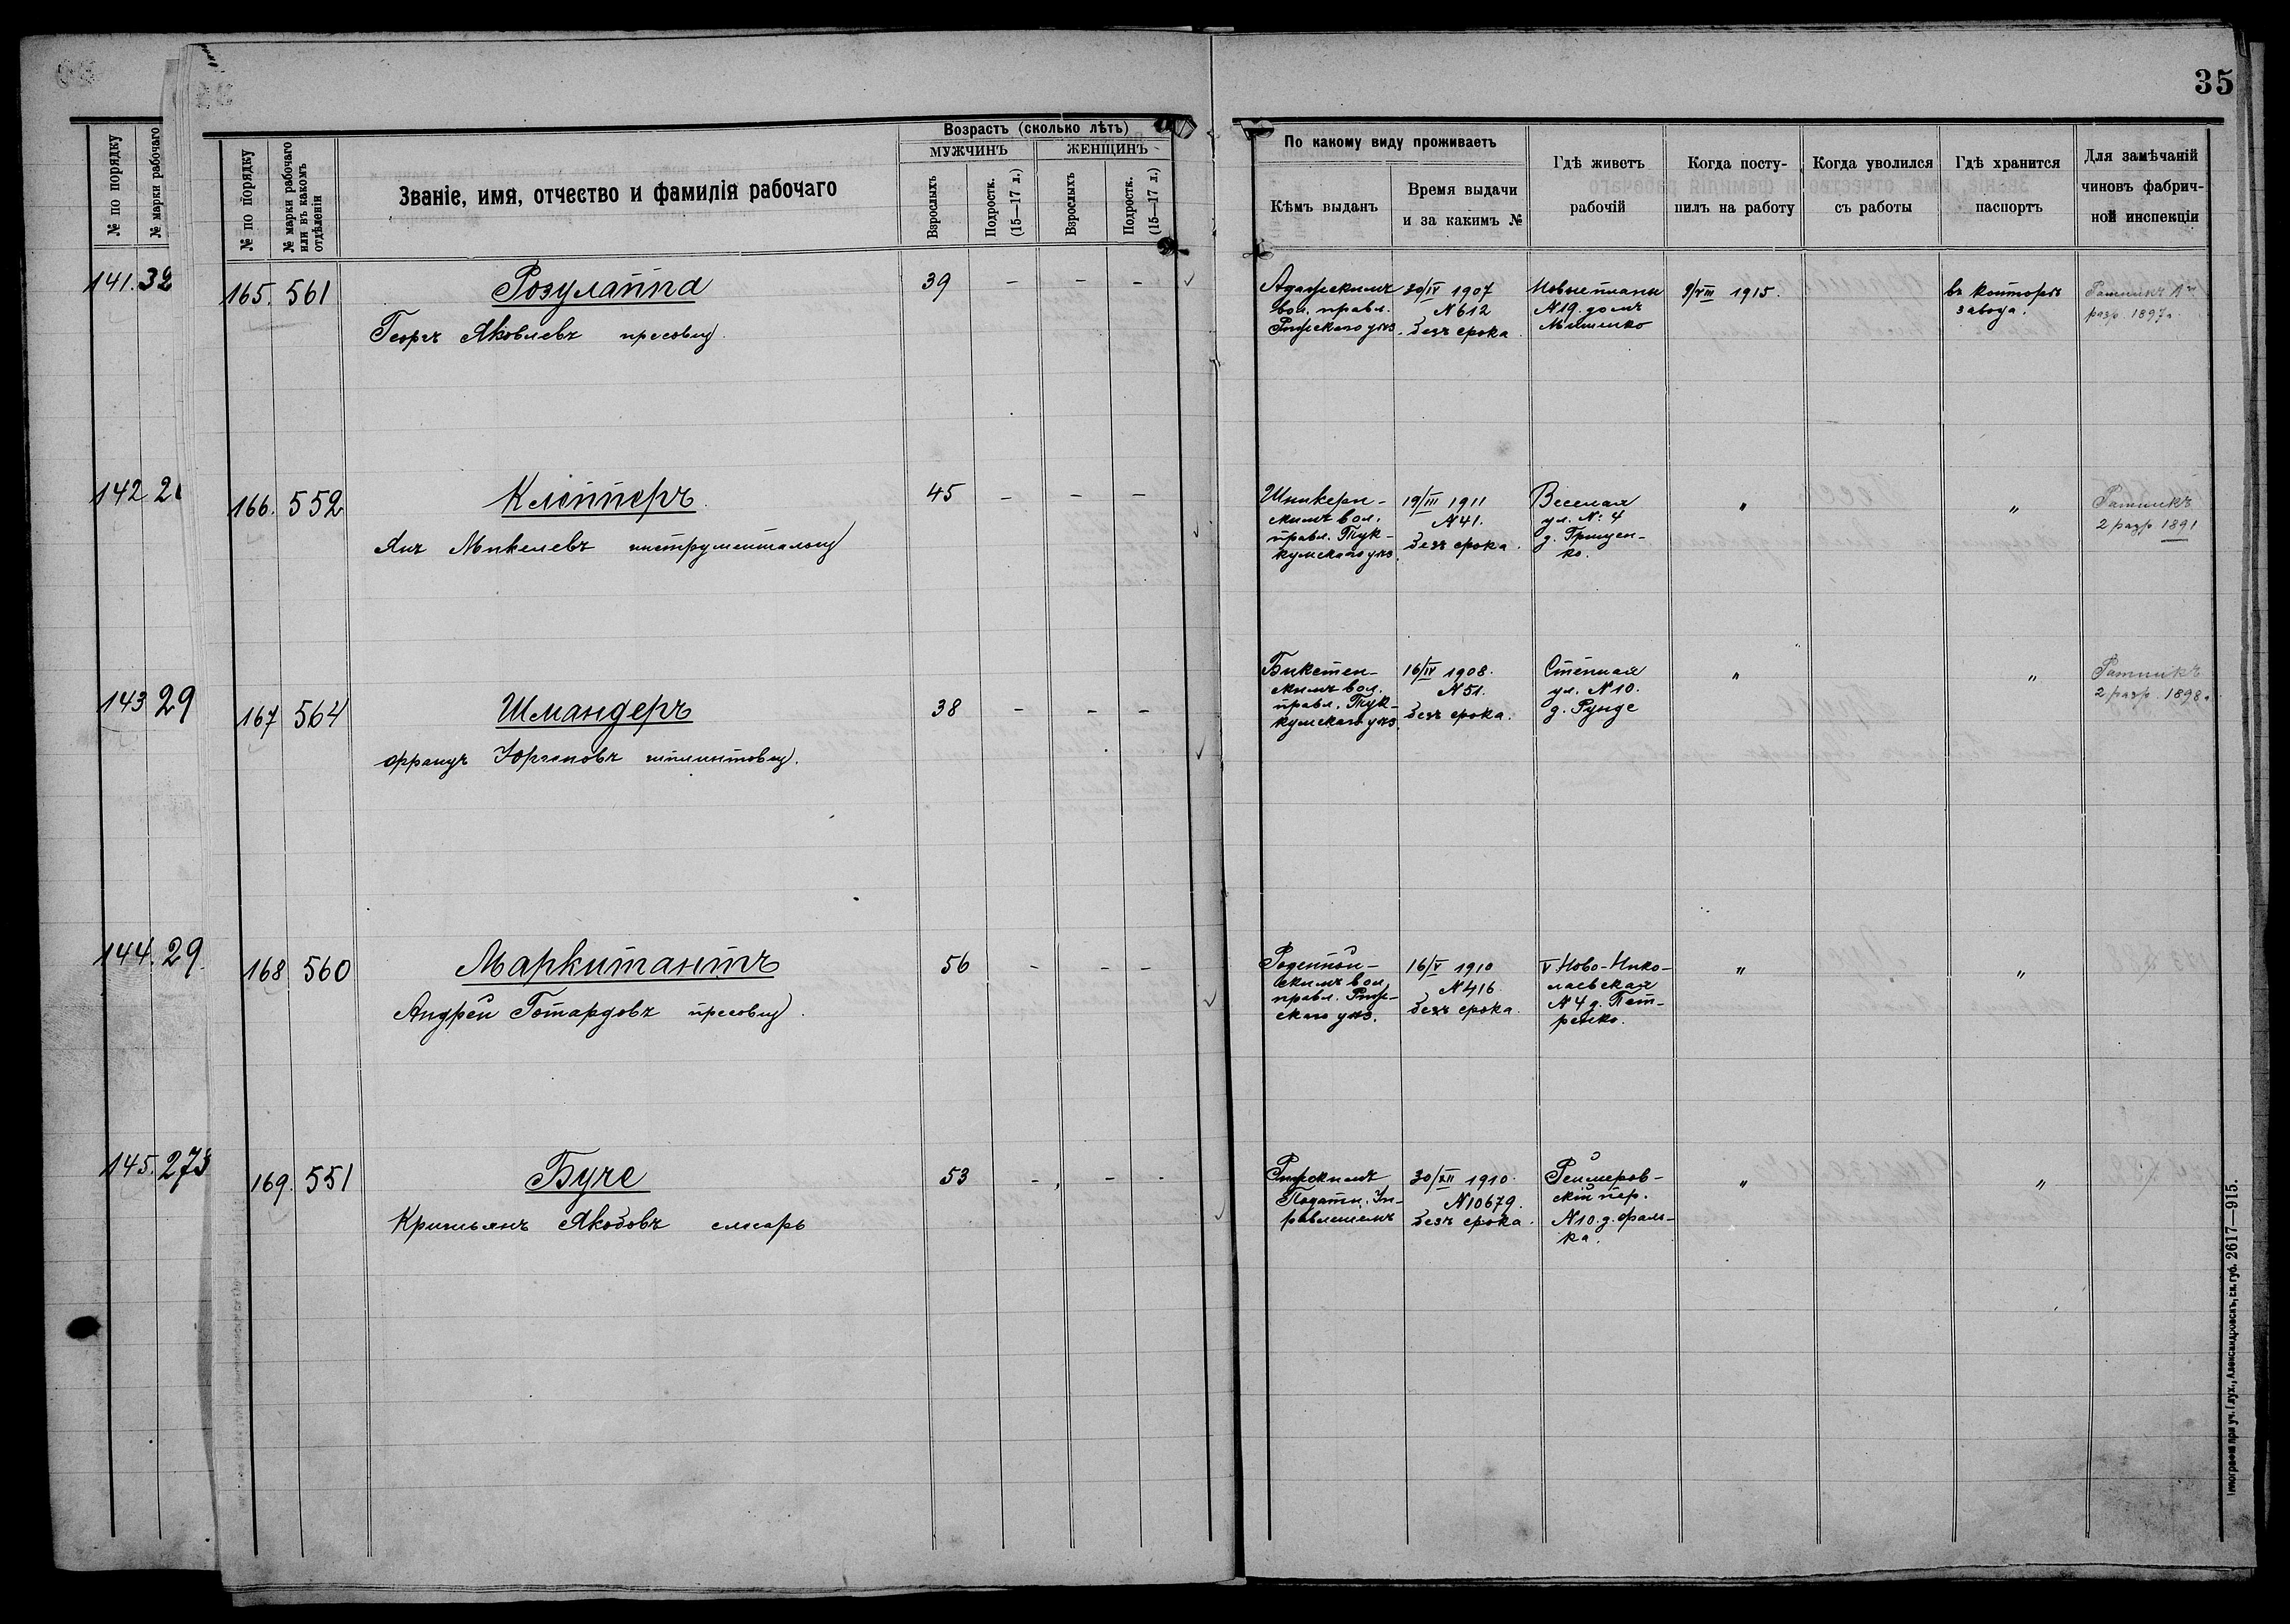 35
№ по порядку
№ марки рабочаго
141. 32
142 2
143 29
144. 29.
145. 273
№ по порядку
№ марки рабочаго или въ какомъ отдѣленіи
Званіе, имя, отчество и фамилія рабочаго
Возрастъ (сколько лѣтъ)
МУЖЧИНЪ
ЖЕНЩИНЪ
Взрослыхъ
Подростк. (15—17 л.)
Взрослыхъ
Подростк. (15—17 л.)
По какому виду проживаетъ
Кѣмъ выданъ
Время выдачи
и за какимъ №
Гдѣ живетъ
рабочій
Когда посту-
пилъ на работу
Когда уволился
съ работы
Гдѣ хранится
паспортъ
Для замѣчаній
чиновъ фабрич-
ной инспекціи
165. 561
Розулаппа
Георгъ Яковлевъ пресовщ.
39 - - -
Адажскимъ
вол. правл.
Рижскаго уѣз.
20/IV 1907
№ 612
безъ срока.
Новые планы
№ 19. домъ
Мишенко
9/VIII 1915.
въ конторѣ
завода.
Ратникъ
разр. 1897 г.
166. 552
Клепперъ.
Янъ Микелевъ инструментальщ
45 - - -
Шлкерн-
скимъ вол.
правл. Тук-
кумскаго уѣз.
19/III 1911
№ 41.
безъ срока.
Веселая
ул. № 4
д. Грицен-
ко.
"
"
Ратникъ
2 разр 1891
167 564
Шмандеръ
Францъ Юргеновъ шплинтовщ.
38 - - -
Бикстен-
скимъ вол.
правл. Тук-
кумскаго уѣз.
16/IV 1908.
№ 51.
безъ срока.
Степная
ул. № 10.
д. Рунде
"
"
Ратникъ
2 разр. 1898 г.
168 560
Маркитантъ
Андрей Готардовъ пресовщ.
56 - - -
Роденпой-
скимъ вол
правл. Риж-
скаго уѣз.
16/V 1910
№ 416
безъ срока.
V Ново-Нико-
лаевская
№ 4 д. Пет-
ренко.
"
"
169. 551
Буче
Кришьянъ Якобовъ слесарь
53 - - -
Рижскимъ
Податн. Уп-
равленіемъ
30/XII 1910.
№ 10679.
безъ срока.
Реймеров-
скій пер.
№ 10. д. Фаль-
ка.
"
"
Типографія при уч. глух., Александровскъ, ек. губ. 2617—915.